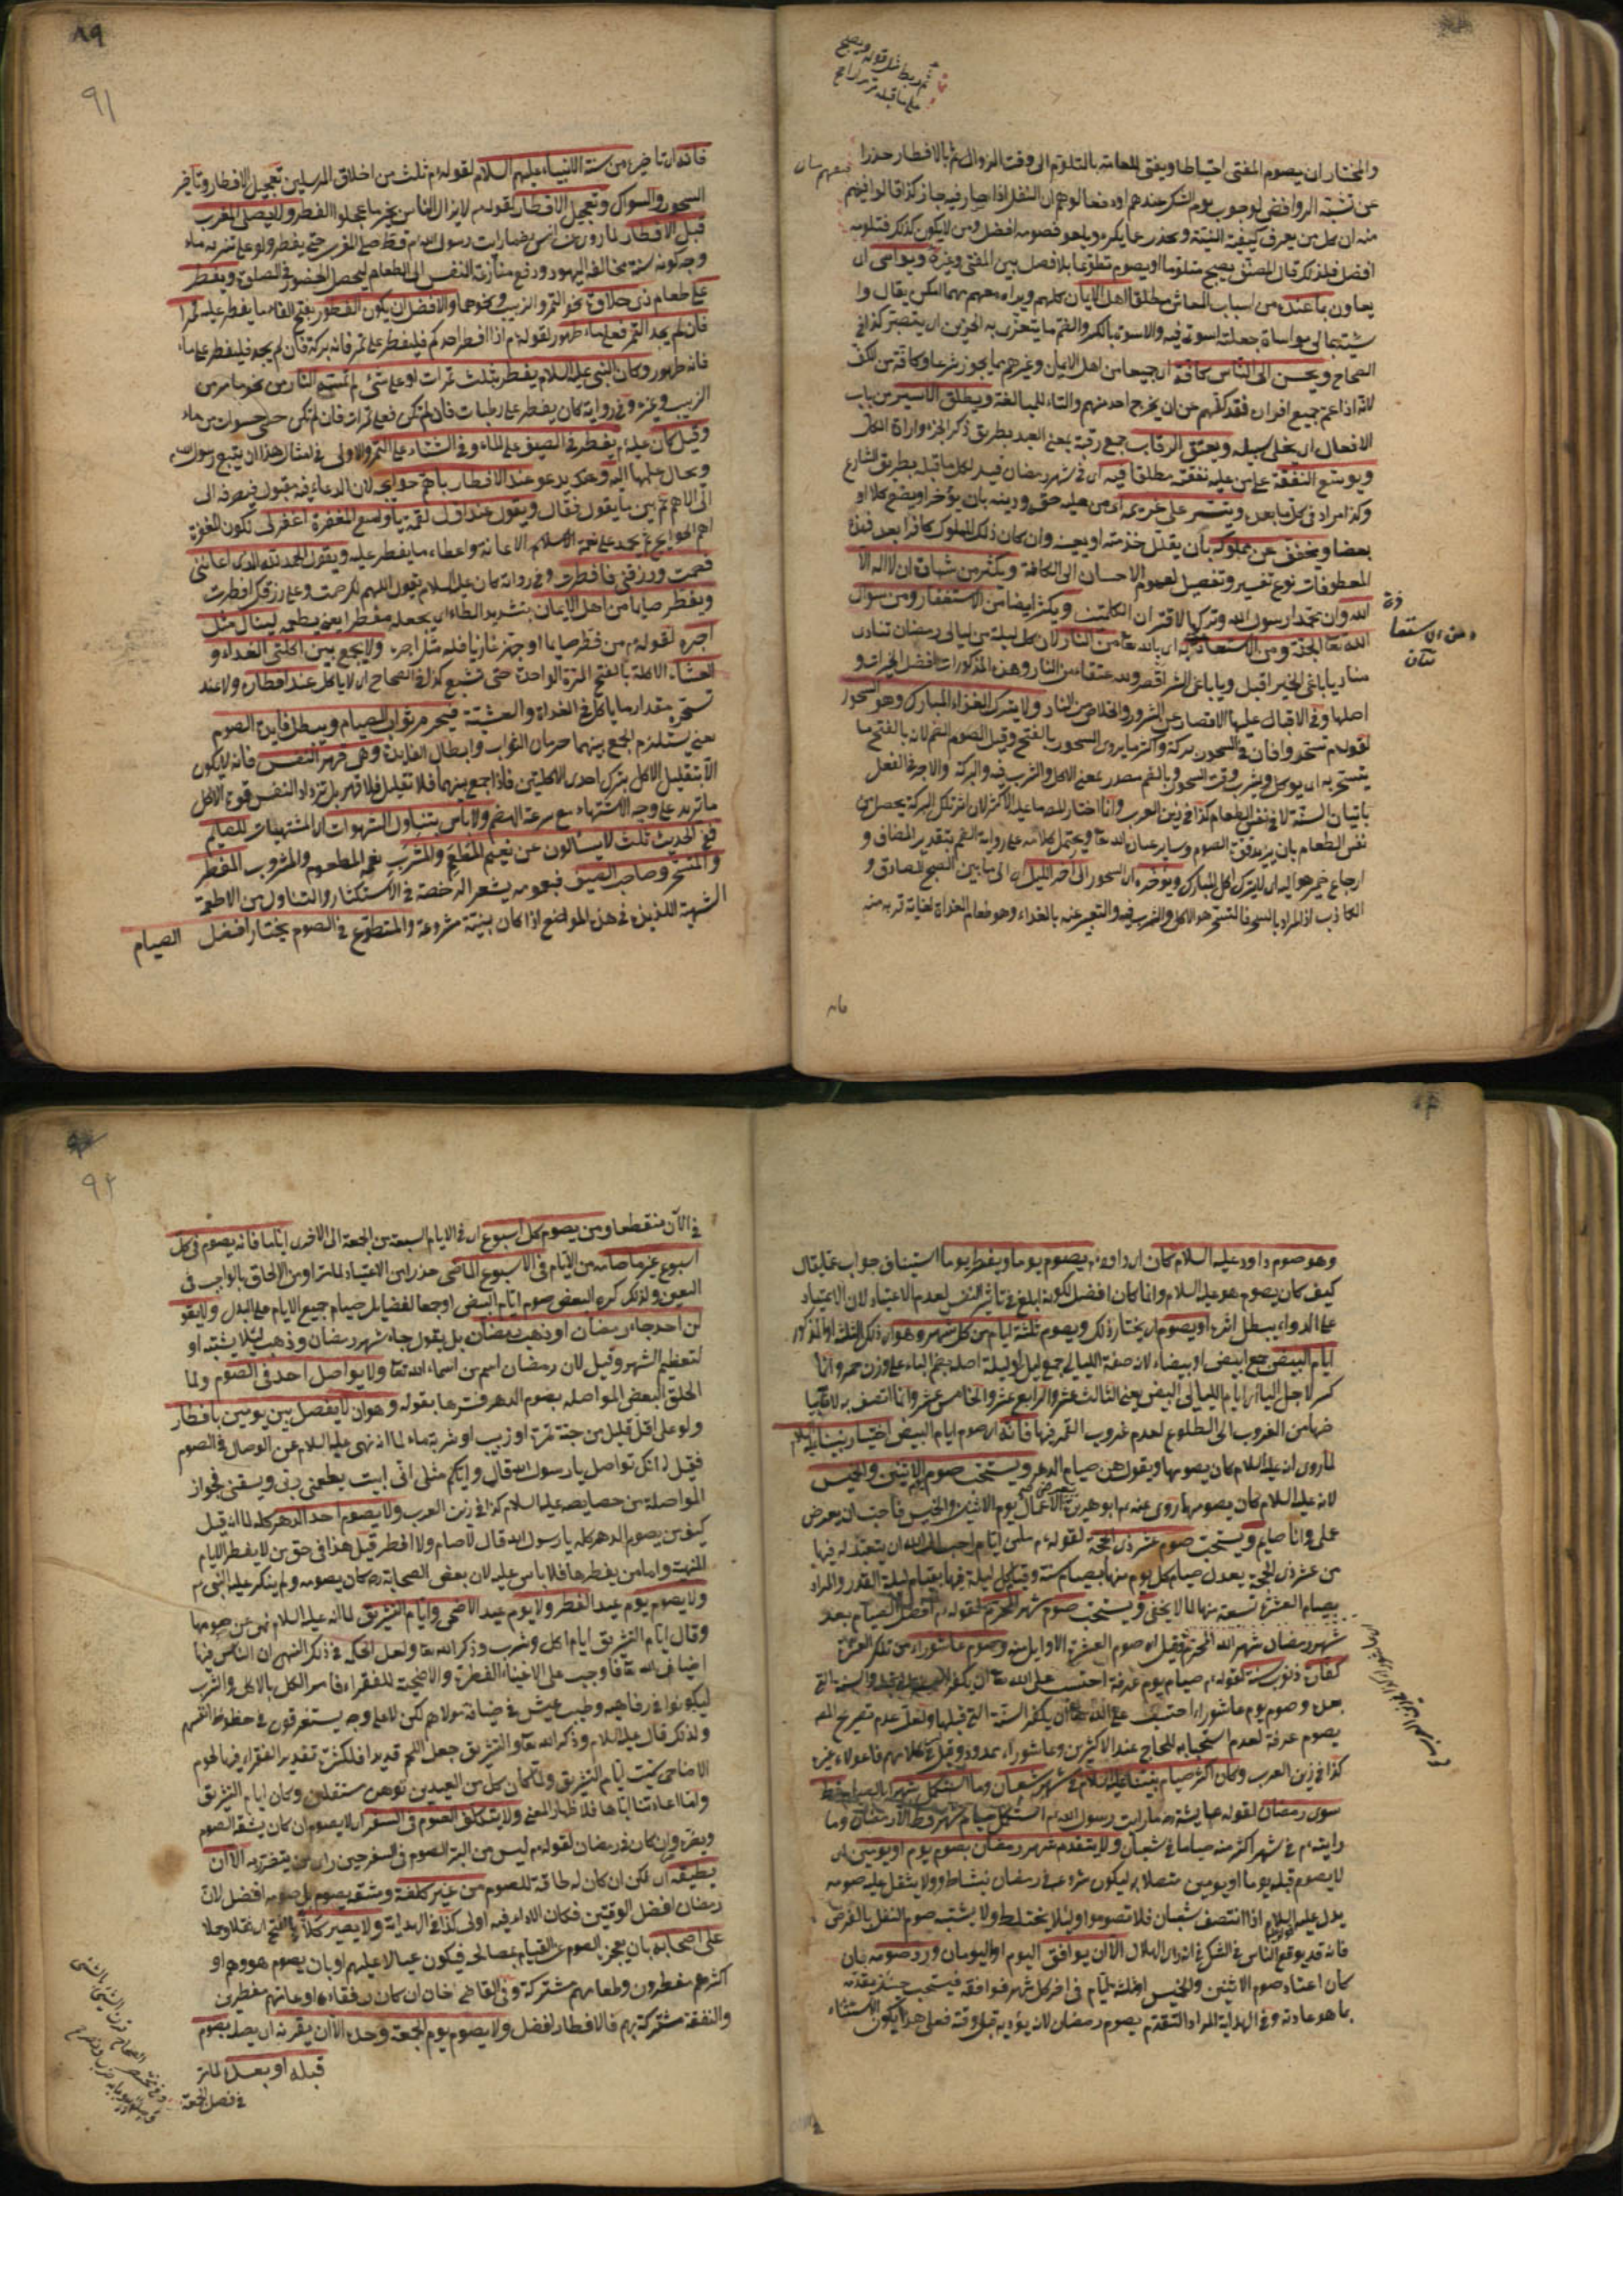 والمختار ان يصوم المفتى احتياطا ويفتى للعامة بالتلوم الى وقت الزوال ثم بالافطار حذرا
عن تشبه الروافض لوجوب يوم الشك عندهم
منه ان كل من يعرف كيفية النية ويحذر عما يكره ويلحق فصومه افضل ومن لا يكون كذلك فتلومه
افضل فلذلك قال المصنف يصبح متلوما او يصوم تطوعا بلا فصل بين المفتى وغيره ويواسى اى
يعاون بما عنده من اسباب المعاش مطلقا اهل الايمان كلهم ويراه معهم مهما امكن يقال وا
الصحاح ويحسن الى الناس كافة اى جميعا من اهل الايمان وغيرهم بما يجوز شرعا وكافة من الكف
لانه اذا عم جميع افراده فقد كفهم عن ان يخرج احد منهم والتاء للمبالغة ويطلق الاسير من باب
الافعال اى يخلى سبيله ويعتق الرقاب جمع رقبة يعنى العبد بطريق ذكر الجزء وارادة الكل
ويوسع النفقة على من عليه نفقته مطلقا فيه اى فى شهر رمضان قيد لكل ما قبله بطريق التنازع
وكذا مراد فى كل ما بعده ويتيسر على غريمه اى من عليه حق ودينه بان يؤخر او يضع كلا او
بعضا ويخفف عن مملوكه بان يقلل خدمته او يعينه وان كان ذلك المملوك كافرا بعد فهذه
المعطوفات نوع تفسير وتفصيل لعموم الاحسان الى الكافة ويكثر من شهادة ان لا اله الا
الله وان محمدا رسول الله وتركها لاقتران الكلمتين ويكثر ايضا من الاستغفار ومن سؤال
الله تعا الجنة ومن الاستعاذة به اى بالله تعا من النار لان كل ليلة من ليالى رمضان تنادى
مناد يا باغى الخير اقبل ويا باغى الشر اقصر ولله عتقاء من النار وهذه المذكورات افضل الخيرات و
اصلها وفى الاقبال عليها الاقصار عن الشرور والخلاص من النار ولا يترك الغداء المبارك وهو السحور
لقوله م تسحروا فان فى السحور بركة واكثر ما يروى السحور بالفتح وقيل الصواب الضم لانه بالفتح ما
يتسحر به اى يؤكل ويشرب وقت السحور وبالضم مصدر بمعنى الاكل والشرب فيه والبركة والاجر فى الفعل
باتيان السنة لا فى نفس الطعام كذا فى زين العرب
نفس الطعام بان يزيد قوة الصوم
ارجاع ضمير هو اليه اى لا يترك اكل المبارك ويؤخره اى السحور الى اخر الليل اى الى ما بين الصبح الصادق و
الكاذب اذ المراد بالسحر فالتسحر هو الاكل والشرب فيه والتعبير عنه بالغداء وهو طعام الغداة لغاية قربه منه
٨٩
٩١
فانه اى تاخيره من سنة الانبياء عليهم السلام لقوله م ثلث من اخلاق المرسلين تعجيل الافطار وتأخير
السحور والسواك وتعجيل الافطار لقوله م لا يزال الناس بخير ما عجلوا الفطر ولا يصلى المغرب
قبل الافطار لما روى عن انس رض ما رايت رسول الله م قط صلى المغرب حتى يفطر ولو على شربة ماء
وجه كونه سنة مخالفة اليهود ودفع منازعة النفس الى الطعام ليحصل الحضور فى الصلوة ويفطر
على طعام ذى حلاوة نحو التمر والزبيب ونحوهما والافضل ان يكون الفطور بفتح الفاء ما يفطر عليه تمرا
فان لم يجد التمر فعلى ماء طهور لقوله م اذا افطر احدكم فليفطر على تمر فانه بركة فان لم يجد فليفطر على ماء
فانه طهور وكان النبى عليه السلام يفطر بثلث تمرات او على شئ لم تمسه النار من نحو ما مر من
الزبيب وغيره وفى رواية كان يفطر على رطبات فان لم تكن فعلى تمرات فان لم تكن حسى حسوات من ماء
وقيل كان عليه م يفطر فى الصيف على الماء وفى الشتاء على التمر والاولى فى امثال هذا ان يتبع رسول الله م
ويحال علمها اليه وهكذا يدعو عند الافطار باهم حوايجه لان الدعاء فيه مقبول فيصرفه الى
الى الاهم ثم بين ما يقول فقال ويقول عند اول لقمة يا واسع المغفرة اغفر لى لكون المغفرة
اهم الحوايج ثم يحمد على نعمة الاسلام الاعانة واعطاء ما يفطر عليه ويقول الحمد لله الذى اعاننى
فصمت ورزقنى فافطرت وفى رواية كان عليه السلام يقول اللهم لك صمت وعلى رزقك افطرت
ويفطر صايما من اهل الايمان بتشديد الطاء اى يجعله مفطرا يعنى يطعمه لينال مثل
اجره لقوله م من فطر صايما او جهز غازيا فله مثل اجره ولا يجمع بين اكلتى الغداء و
العشاء الاكلة بالفتح المرة الواحدة حتى تشبع كذا فى الصحاح اى لا ياكل عند افطاره ولا عند
تسحره مقدار ما ياكل فى الغداة والعشية فيحرم ثواب الصيام ويبطل فايدة الصوم
يعنى يستلزم الجمع بينهما حرمان الثواب وابطال الفايدة وهى قهر النفس فانه لا يكون
الا بتقليل الاكل بترك احدى الاكلتين فاذا جمع بينهما فلا تقليل فلا قهر بل تزداد النفس قوة الاكل
ما تريد على وجه الاشتهاء مع سرعة الهضم ولا باس بتناول الشهوات اى المشتهيات للصايم
ففى الحديث ثلث لا يسألون عن نعيم المطعم والمشرب يعنى المطعوم والمشروب المفطر
والمتسحر وصاحب الضيف فعمومه يشعر الرخصة فى الاستكثار والتناول من الاطعمة
الشهية اللذيذة فى هذه المواضع اذا كان بنية مشروعة والمتطوع فى الصوم يختار افضل الصيام
وهو صوم داود عليه السلام كان اى داود م يصوم يوما ويفطر يوما استيناف جواب عما يقال
كيف كان يصوم هو عليه السلام وانما كان افضل لكونه ابلغ فى تأثير النفس لعدم الاعتياد لان الاعتياد
على الدواء يبطل اثره او يصوم اى يختار ذلك ويصوم ثلثة ايام من كل شهر وهو اى ذلك الثلثة او المذكور
ايام البيض جمع ابيض او بيضاء لانه صفة الليالى جمع ليل او ليلة اصله بضم الباء على وزن حمر وانما
كسر لاجل الياء اى ايام الليالى البيض يعنى الثالث عشر والرابع عشر والخامس عشر وانما اتصف به
من الغروب الى الطلوع لعدم غروب القمر فيها فانه اى صوم ايام البيض اختيار نبينا عليه السلام
لما روى انه عليه السلام كان يصومها ويقول هن صيام الدهر ويستحب صوم الاثنين والخميس
لانه عليه السلام كان يصومهما روى عنه م ابو هريرة تعرض الاعمال يوم الاثنين والخميس فاحب ان يعرض
على وانا صايم ويستحب صوم عشر ذى الحجة لقوله م ما من ايام احب الى الله ان يتعبد له فيها
من عشر ذى الحجة يعدل صيام كل يوم منها بصيام سنة وقيام كل ليلة فيها بقيام ليلة القدر والمراد
بصيام العشرة تسعة منها لما لا يخفى ويستحب صوم شهر المحرم لقوله م افضل الصيام بعد
شهر رمضان شهر الله المحرم وقيل اى صوم العشرة الاوايل منه وصوم عاشوراء من تلك العشرة
كفارة ذنوب سنة لقوله م صيام يوم عرفة احتسب على الله تعا ان يكفر السنة التى قبله والسنة التى
بعده وصوم يوم عاشوراء احتسب على الله تعا ان يكفر السنة التى قبلها ولعل عدم تصريح المصـ
بصوم عرفة لعدم استحبابه للحاج عند الاكثرين وعاشوراء ممدود وقيل فى كلامهم فاعولاء غيره
كذا فى زين العرب وكان اكثر صيام نبينا عليه السلام فى شهر شعبان وما استكمل شهرا بالصيام قط
سوى رمضان لقوله عايشة رض ما رايت رسول الله م استكمل صيام شهر قط الا رمضان وما
رايته م فى شهر اكثر منه صياما فى شعبان ولا يتقدم شهر رمضان بصوم يوم او يومين اى
لا يصوم قبله يوما او يومين متصلا به ليكون شروعه فى رمضان بنشاط ولا يثقل عليه صومه
يدل عليه السلام اذا انتصف شعبان فلا تصوموا ولئلا يختلط ولا يشتبه صوم النفل بالفرض
فانه قد يوقع الناس فى الشك فى انه راى الهلال الا ان يوافق اليوم او اليومان ورد صومه بان
كان اعتاد صوم الاثنين والخميس او ثلثة ايام فى اخر كل شهر فوافقه فيستحب حينئذ تقدمه
بما هو عادته وفى الهداية المراد التقدم بصوم رمضان لانه يؤديه قبل وقته فعلى هذا يكون الاستثناء
٩٢
فى الا ان منقطعا ومن يصوم كل اسبوع اى فى الايام السبعة من الجمعة الى الاخرى اياما فانه يصوم فى كل
اسبوع غير ما صامه من الايام فى الاسبوع الماضى حذرا من الاعتياد لما مر او من الالحاق بالواجب فى
التعين ولذلك كره البعض صوم ايام البيض
لن احد جاء رمضان او ذهب رمضان بل يقول جاء شهر رمضان وذهب لئلا يشتبه او
لتعظيم الشهر وقيل لان رمضان اسم من اسماء الله تعا ولا يواصل احد فى الصوم ولما
اطلق البعض المواصلة بصوم الدهر فسرها بقوله وهو ان لا يفصل بين يومين بافطار
ولو على اقل قليل من حبة تمرة او زبيب او شربة ماء لما انه نهى عليه السلام عن الوصال فى الصوم
فقيل انك تواصل يا رسول الله قال وايكم مثلى انى ابيت يطعمنى ربى ويسقنى فجواز
المواصلة من خصايصه عليه السلام كذا فى زين العرب ولا يصوم احد الدهر كله لما انه قيل
كيف من يصوم الدهر كله يا رسول الله قال لا صام ولا افطر قيل هذا فى حق من لا يفطر الايام
المنهية واما من يفطرها فلا باس عليه لان بعض الصحابة رض كان يصومه ولم ينكر عليه النبى م
ولا يصوم يوم عيد الفطر ولا يوم عيد الاضحى وايام التشريق لما انه عليه السلام نهى عن صومها
وقال ايام التشريق ايام اكل وشرب وذكر الله تعا ولعل الحكمة فى ذلك النهى ان الناس فيها
اضياف الله تعا فاوجب على الاغنياء الفطرة والاضحية للفقراء فامر الكل بالاكل والشرب
ليكونوا فى رفاهية وطيب عيش فى ضيافة مولاهم لكن لا على وجه يستغرقون فى حظوظ انفسهم
ولذلك قال عليه السلام وذكر الله تعا والتشريق جعل اللحم قديدا فلكثرة تقديد الفقراء فيها لحوم
الاضاحى سميت ايام التشريق ولما كان كل من العيدين
ولا يتكلف الصوم فى السفر اى لا يصوم ان كان يشقه الصوم
ويضره وان كان فى رمضان لقوله م ليس من البر الصوم فى السفر حين راى من يتضرر به الا ان
يطيقه اى لكن ان كان له طاقة للصوم من غير كلفة ومشقة يصوم بل صومه افضل لان
رمضان افضل الوقتين فكان الاداء فيه اولى كذا فى الهداية ولا يصير كلا بالفتح اى ثقلا وحملا
على اصحابه بان يعجز بالصوم عن القيام بمصالحه فيكون عيالا عليهم او بان يصوم هو وحده او
اكثرهم مفطرون وطعامهم مشتركة وفى القاضى خان ان كان رفقاءه او عامتهم مفطرين
والنفقة مشتركة بينهم فالافطار افضل ولا يصوم يوم الجمعة وحده الا ان يقرنه اى يصله بصوم
قبله او بعده لما مر
فى فصل الجمعة